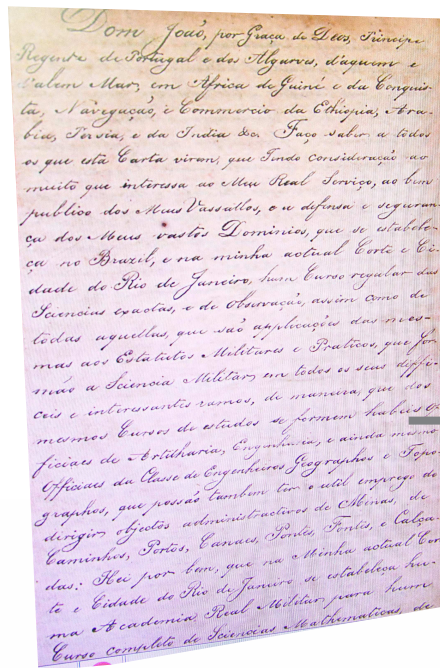 Dom João, por Graça de Deos, Principe
Regente de Portugal e dos Algarves, d'aquem e
d'alem Mar, em Africa de Guiné e da Conquis-
ta, Navegação, e Commercio da Ethiopia, Ara-
bia, Persia, e da India &c. Faço saber a todos
os que esta Carta virem, que Tendo consideração ao
muito que interessa ao Meu Real Serviço, ao bem
publico dos Meus Vassallos, e a defensa e seguran-
ça dos Meus vastos Dominios, que se estabele-
ça no Brazil, e na minha actual Corte e Ci-
dade do Rio de Janeiro, hum Curso regular das
Sciencias exactas, e de observação, assim como de
todas aquellas, que saõ applicações das mes-
mas aos Estatutos Militares e Praticos, que for-
maõ a Sciencia Militar em todos os seus diffi-
ceis e interessantes ramos, de maneira, que dos
mesmos Cursos de estudos se formem habeis Of-
ficiaes de Artilharia, Engenharia, e ainda mesmo
Officiaes da Classe de Engenheiros Geographos e Topo-
graphos, que possaõ tambem ter o util emprego de
dirigir objectos administractivos de Minas, de
Caminhos, Portos, Canaes, Pontes, Fontes, e Calça-
das: Hei por bem, que na Minha actual Cor-
te e Cidade do Rio de Janeiro se estabeleça hu-
ma Academia Real Militar para hum
Curso completo de Sciencias Mathematicas, de